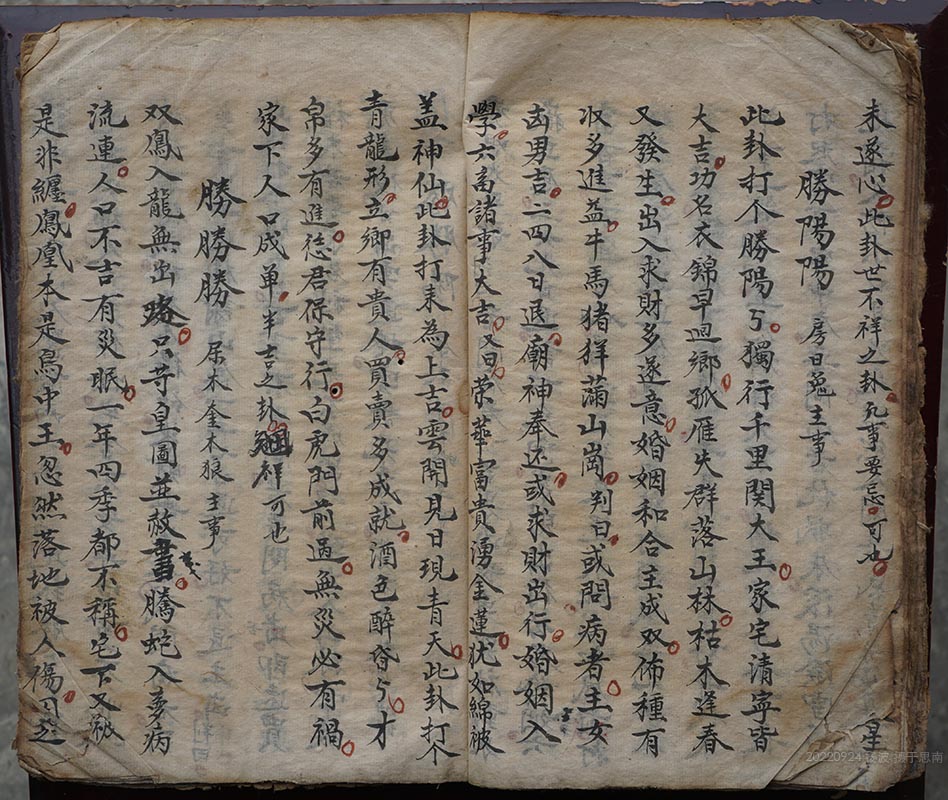 未遂心此卦世不祥之卦凡事要忌可也
勝陽陽 房日兔主事
此卦打个勝陽陽獨行千里関大王家宅清寧皆
大吉功名衣錦早迴鄉孤雁失群落山林枯木逢春
又發生出入求財多遂意婚姻和合主成双佈種有
收多進益牛馬猪羊满山崗判曰或問病者主女
凶男吉二四八日退廟神奉还或求財出行婚姻入
學六畜諸事大吉又曰荣華富貴湧金蓮犹如綿被
盖神仙此卦打来為上吉雲開見日現青天此卦打个
青龍形立鄉有貴人買賣多成就酒色醉昏昏才
帛多有進慫君保守行白虎門前過無災必有禍
家下人口成单半吉之卦祥可也
勝勝勝 奎木狼主事
双鳳入龍無出路只苛皇圖並赦書騰蛇入夢病
流連人口不吉有災眠一年四季都不稱宅下又被
是非纏鳳凰本是鳥中王忽然落地被人傷
20220924 摄于思南